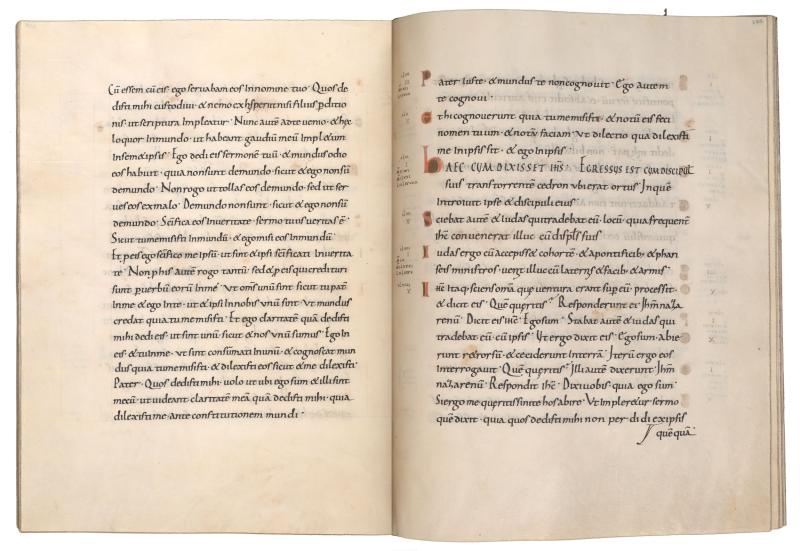 Cū essem cū eis · ego servabam eos Innomine tuo · Quos de
disti mihi custodivi · & nemo ex hís perut nisi filius pditio
nis · ut scriptura Impleatur · Nunc autē adte venio · & hęc
loquor Inmundo · ut habeant gaudiū meū Impletum
Insemetipsis · Ego dedi eis sermonē tuū · & mundus odio
eos habuit · quia nonsunt demundo · sicut & ego nonsū
demundo · Non rogo ut tollas eos demundo · sed ut ser
ves eos exmalo · Demundo nonsunt · sicut & ego nonsū
demundo · Scīfica eos Inveritate · sermo tuus veritas ē ·
Sicut tumemisisti Inmundū · & egomisi eos Inmundū ·
Et p eis ego scīfico me ipsū · ut sint & ipsi scīficati Inverita
te · Non p his autē rogo tantū · sed & p eis qui credituri
sunt p verbū eorū Inmē · Ut oms unū sint · sicut tu patr̄
Inme · & ego Inte · ut & ipsi Innobis unū sint · Ut mundus
credat quia tu me misisti · Et ego claritatē quā dedisti
mihi dedi eis · ut sint unū · sicut & nos unū sumus · Ego In
eis · & tu Inme · ut sint consūmati Inunū · & cognoscat mun
dus quia tu me misisti · & dilexisti eos sicut & me dilexisti ·
Pater · Quos dedisti mihi · volo ut ubi ego sum & illi sint
mecū · ut videant claritatē meā quā dedisti mihi · quia
dilexisti me · ante constitutionem mundi ·
Pater Iuste · & mundus te noncognovit · Ego autem
te cognovi ·
Ethi cognoverunt quia tu me misisti · & notū eis feci
nomen tuum · & notū faciam · Ut dilectio qua dilexisti
me Inipsis sit · & ego Inipsis ·
HAEC CUM DIXISSET IHS · EGRESSUS EST CUM DISCIPUL
suis transtorrentē cedron · ubi erat ortus · Inquē
Introivit ipse & discipuli eius ·
Sciebat autē & iudas qui tradebat eū · locū · quia frequent̄
ihc̄ convenerat illuc cū discplis suis ·
Iudas ergo cū accepisset cohortē · & apontificib · & phari
seis ministros · venit illuc cū laternis & facib · & armis ·
Ihc̄ itaq sciens omā que ventura erant sup eū · processit ·
& dicit eis · Quē queritis · Responderunt ei · Ihm̄ naza
renū · Dicit eis ihc̄ · Ego sum · Stabat autē & iudas qui
tradebat eū cū ipsis · Ut ergo dixit eis · Ego sum · abie
runt retrorsū · & ceciderunt Interrā · Iterū ergo eos
interrogavit · Quē queritis · Illi autē dixerunt · Ihm̄
nazarenū · Respondit ihc̄ · Dixi vobis quia ego sum ·
Siergo me queritis sinite hos abire · Ut Impleretur sermo
quē dixit · quia quos dedisti mihi non perdidi ex ipsis
quēquā ·